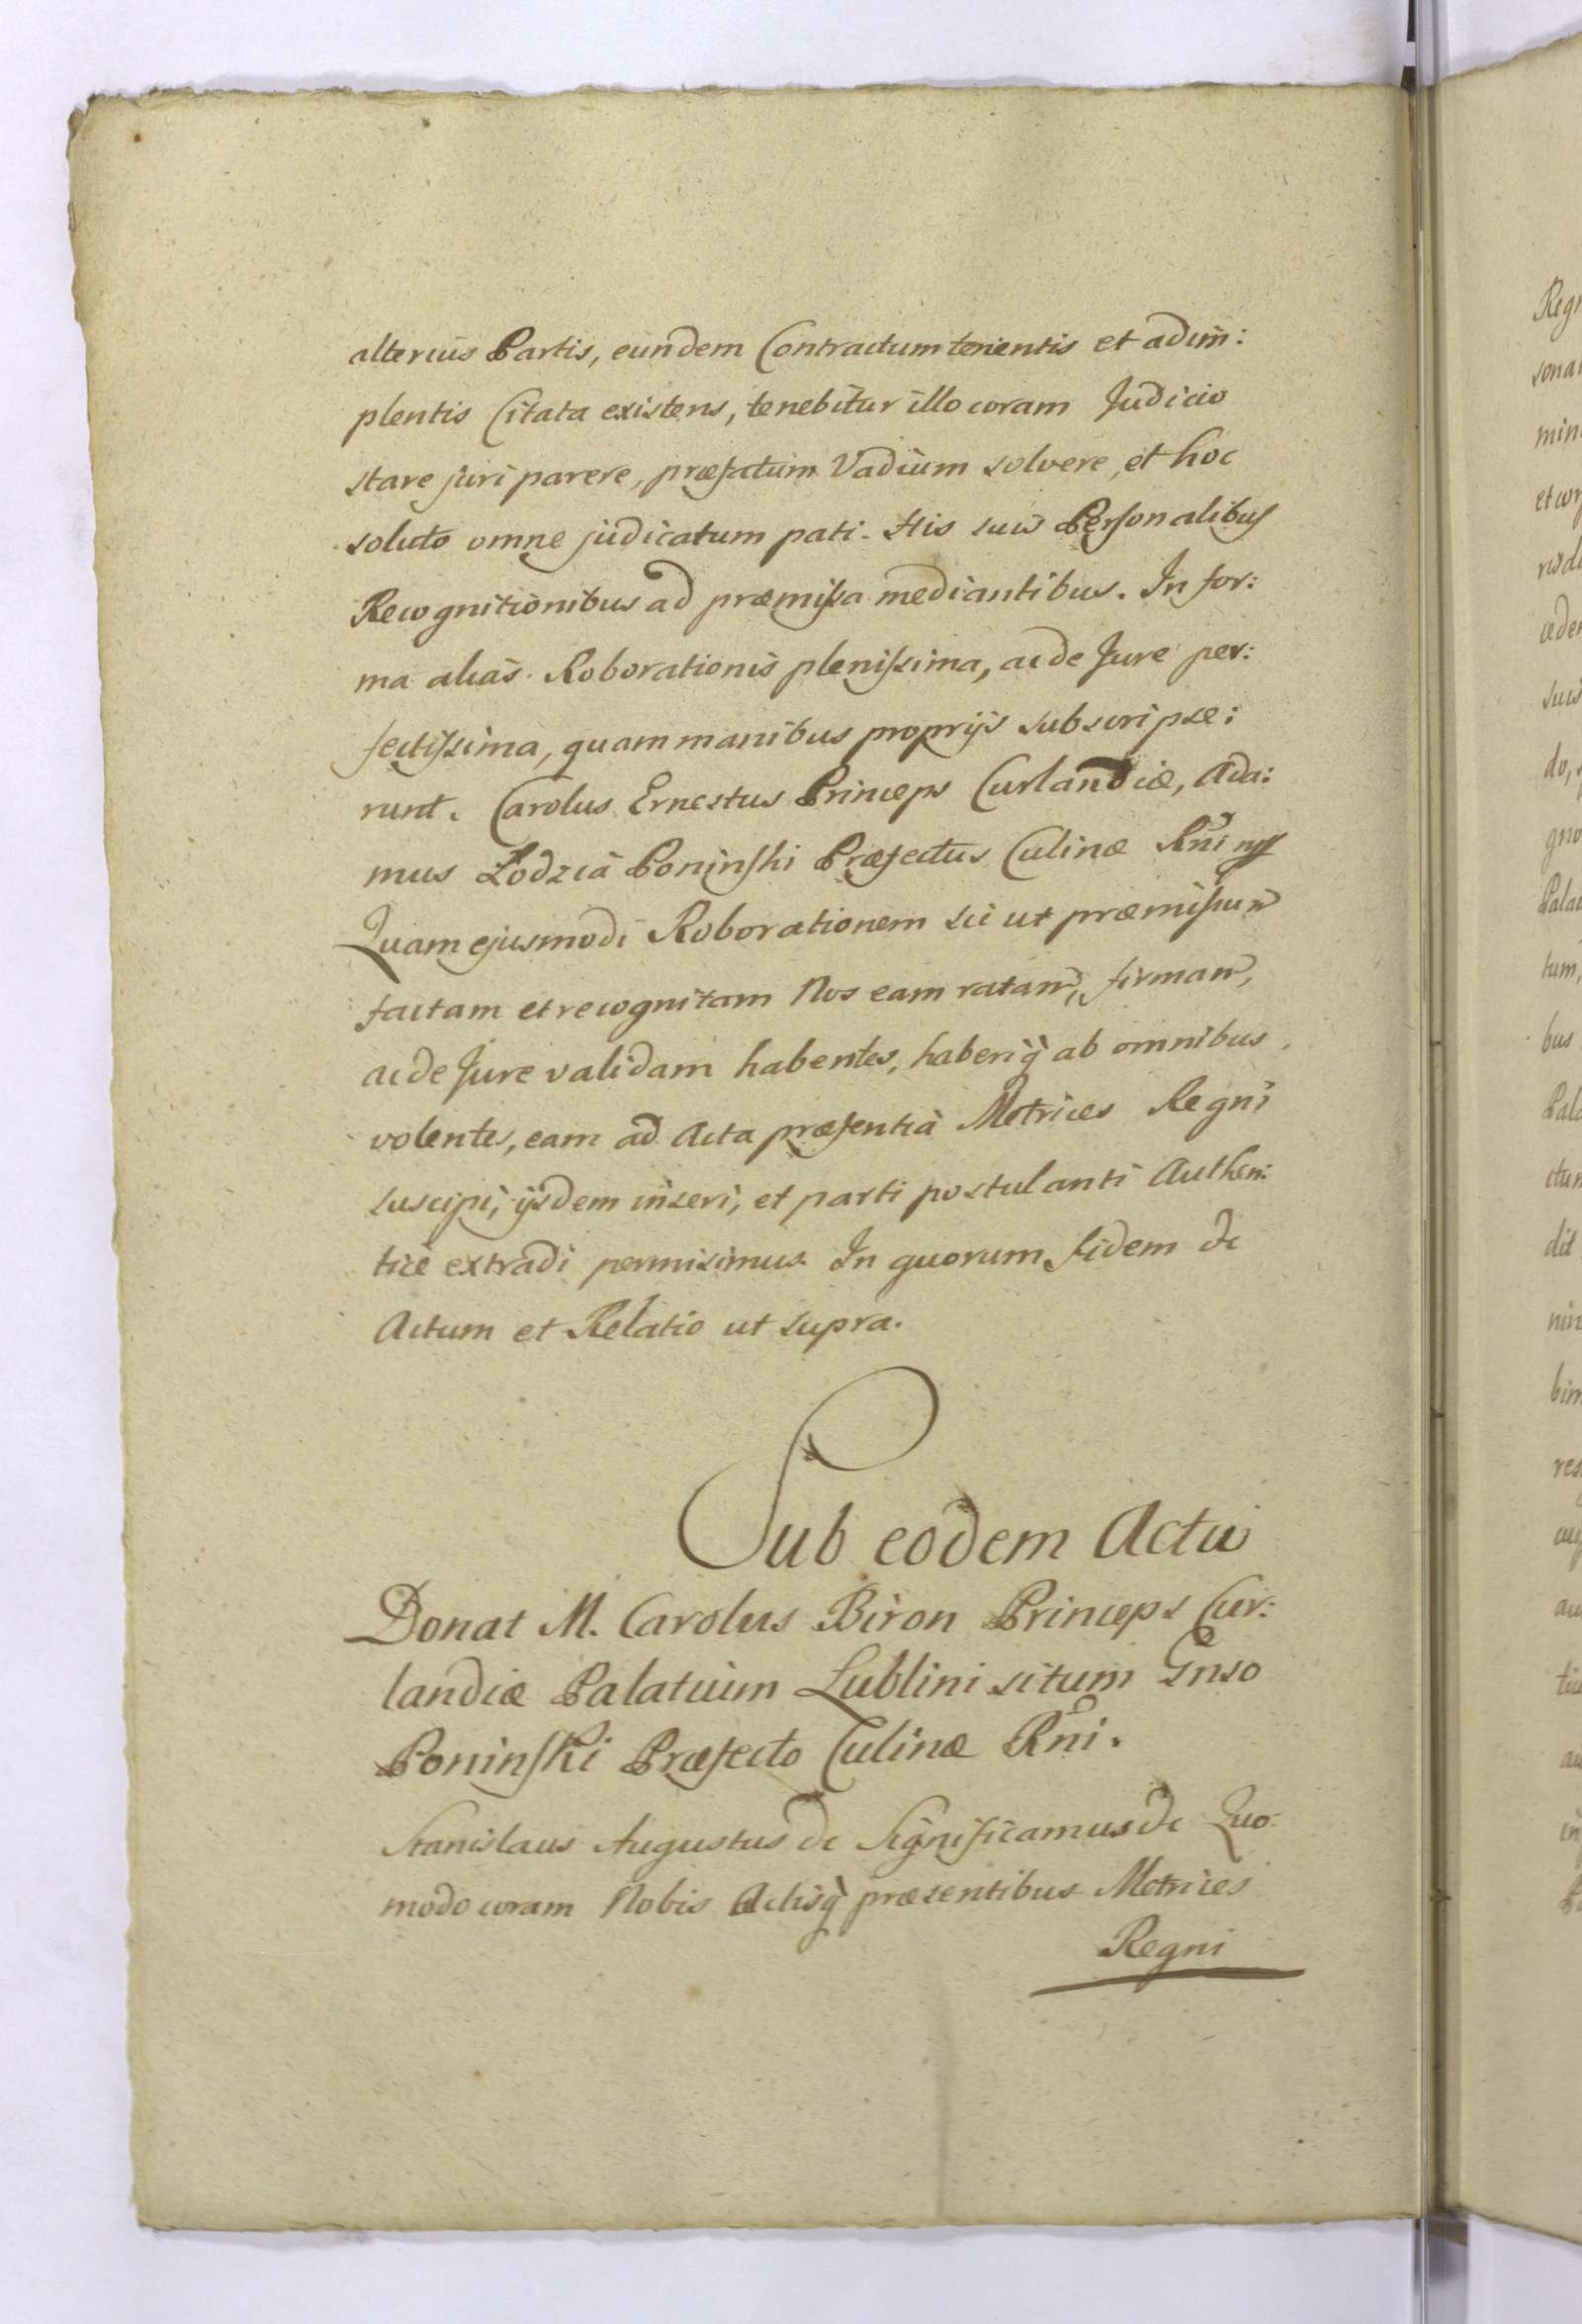 alterius Partis, eundem Contractum tenentis et adim:
plentis Citata existens, tenebitur illo coram Judicio
stare juri parere, præfatum Vadium solvere, et hoc
soluto omne judicatum pati. His suis Personalibus
Recognitionibus ad præmissa mediantibus. In for:
ma alias Roborationis plenissima, ac de Jure per:
fectissima, quam manibus proprijs subscripse:
runt. Carolus Ernestus Princeps Curlandiæ, Ada:
mus Lodzia Poninski Præfectus Culinæ Rñi
Quam ejusmodi Roborationem sic ut præmissum
factam et recognitam Nos eam ratam, firmam,
ac de Jure validam habentes, haberiq̀ ab omnibus
volentes, eam ad Acta præsentia Metrices Regni
suscipi, ijsdem inseri, et parti postulanti Authen:
tice extradi permisimus. In quorum fidem &c
Actum et Relatio ut supra.
Sub eodem Actu
Donat M. Carolus Biron Princeps Cur:
landiæ Palatium Lublini situm Gnso
Poninski Præfecto Culinæ Rñi.
Stanislaus Augustus &c Significamus &c Quo:
modo coram Nobis Actisq̀ præsentibus Metrices
Regni